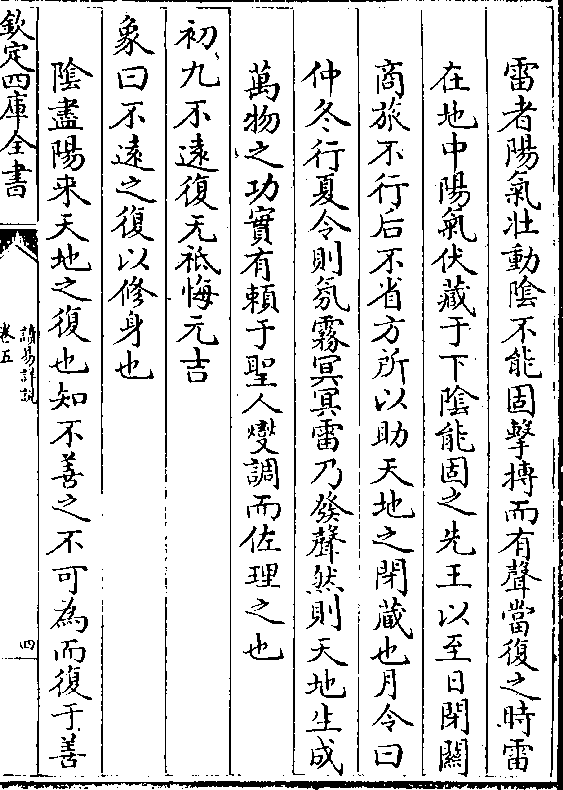 雷者陽氣壯動陰不能固擊搏而有聲當復之時雷
在地中陽氣伏藏于下陰能固之先王以至日閉關
商旅不行后不省方所以助天地之閉藏也月令曰
仲冬行夏令則氛霧冥冥雷乃發聲然則天地生成
萬物之功實有賴于聖人燮調而佐理之也
初九不遠復无祗悔元吉
象曰不遠之復以修身也
陰盡陽来天地之復也知不善之不可為而復于善
欽定四庫全書
讀易詳説
卷五
四